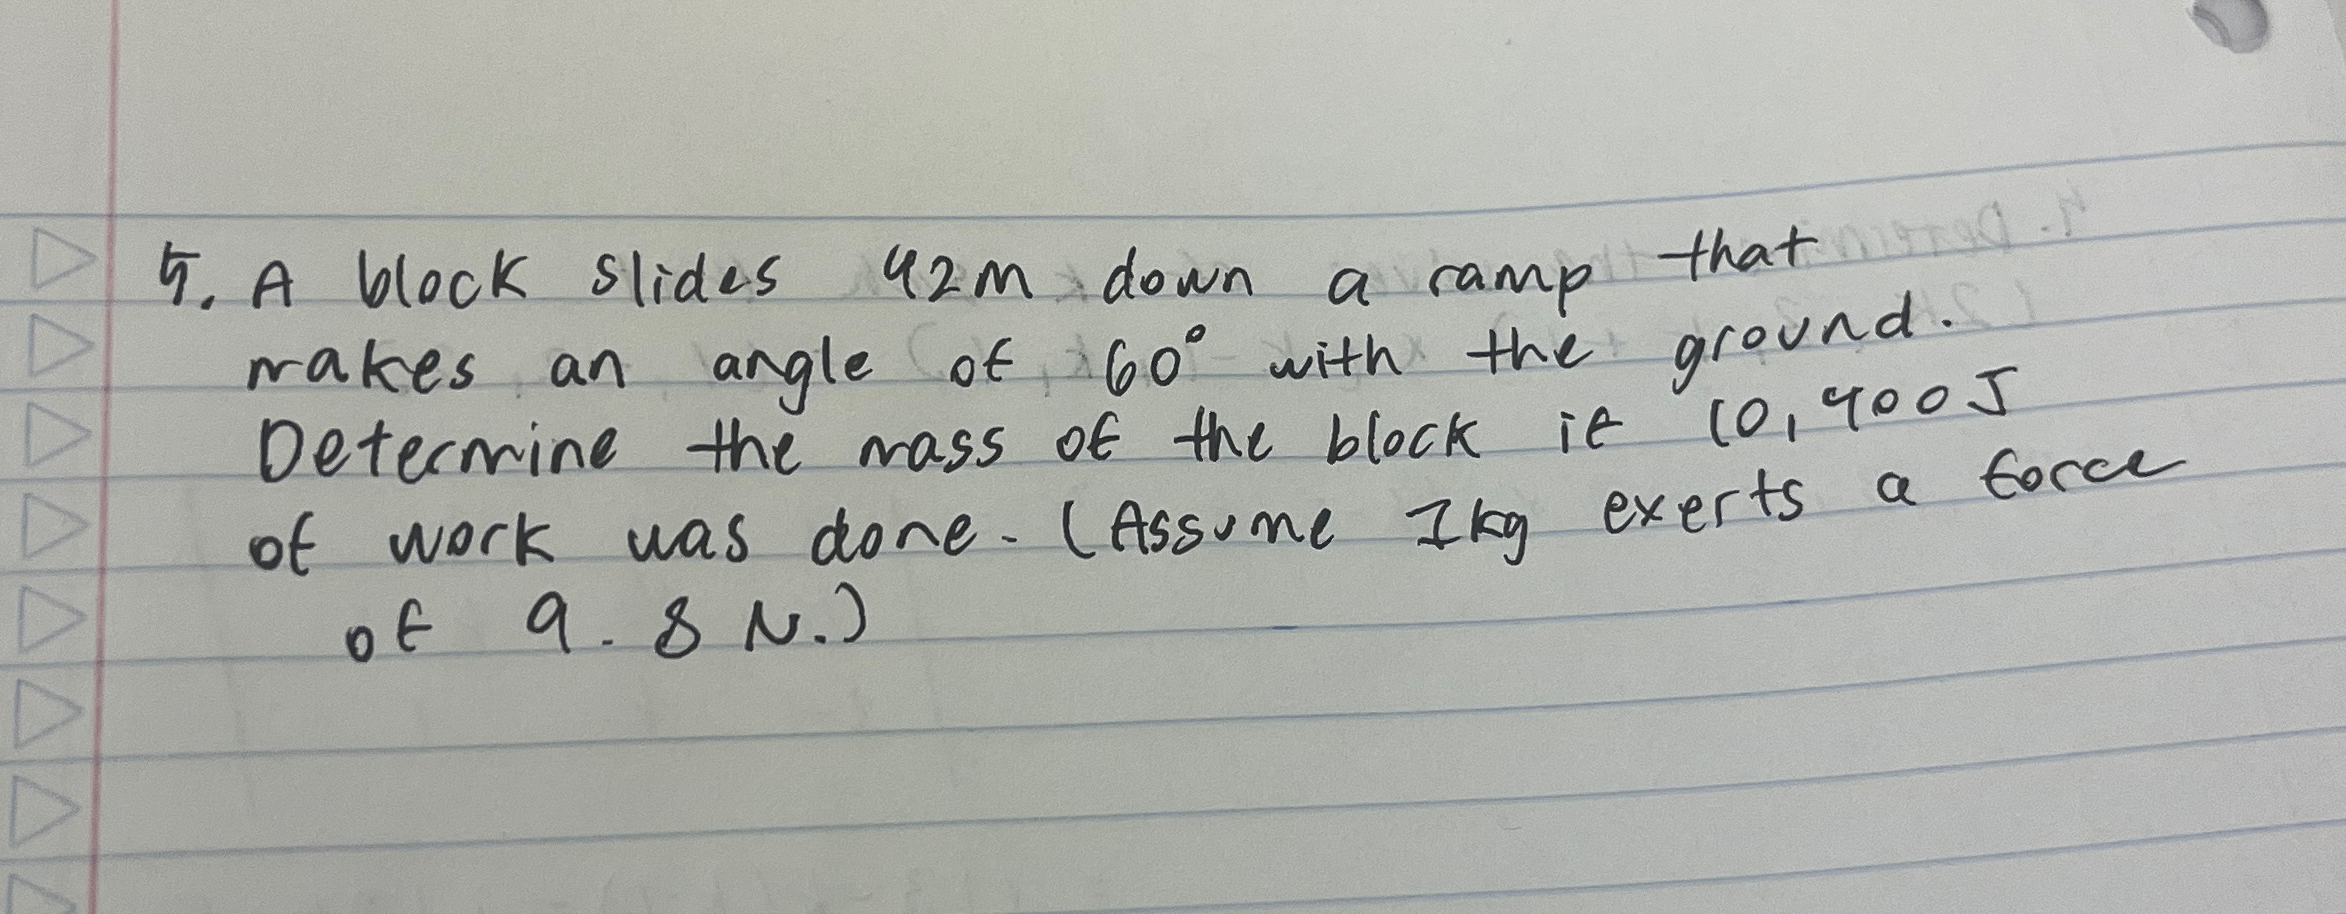 5. A block slides 42m down a ramp that
makes an angle of 60° with the ground.
Determine the mass of the block if 10,400J
of work was done. (Assume 1kg exerts a force
of 9.8 N.)